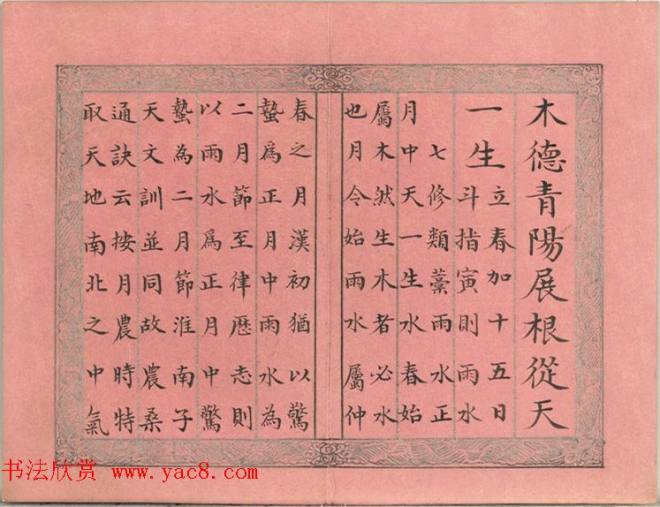 木德青陽展根從天
一生
立春加十五日
斗指寅則雨水
七修類藁雨水正
月中天一生水春始
屬木然生木者必水
也月令始雨水屬仲
春之月漢初猶以驚
蟄爲正月中雨水為
二月節至律歷志則
以雨水爲正月中驚
蟄為二月節淮南子
天文訓並同故農桑
通訣云按月農時特
取天地南北之中氣
书法欣赏 www.yac8.com